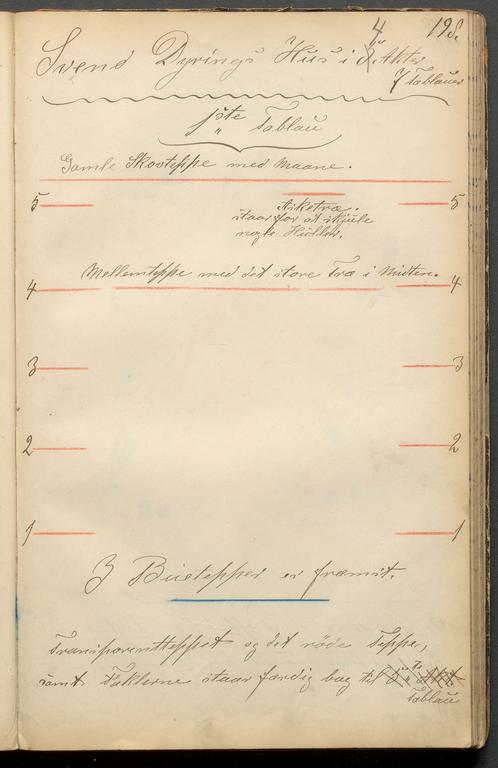 198.
Svend Dyrings Hus i 4 Akter
7 Tablauer
1ste Tablau
Gamle Skovteppe med Maane.
5 5
Asketræ.
staar for at skjule
nogle Huller.
Mellemteppe med det store Træ i Midten.
4 4
3 3
2 2
1 1
3 Buetepper er fremst.
Transparentteppet og det røde Teppe,
samt Faklerne staar færdig bag til 2
Tablau